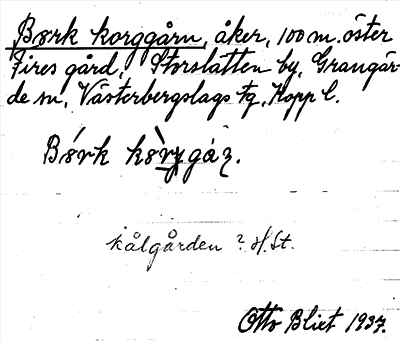 Børk korggårn, åker, 100 m. öster
Fires gård, Storslätten by, Grangär-
de sn, Västerbergslags tg, Kopp l.
Børk kørg gáɳ.
kålgården? H. St.
Otto Blixt 1937.